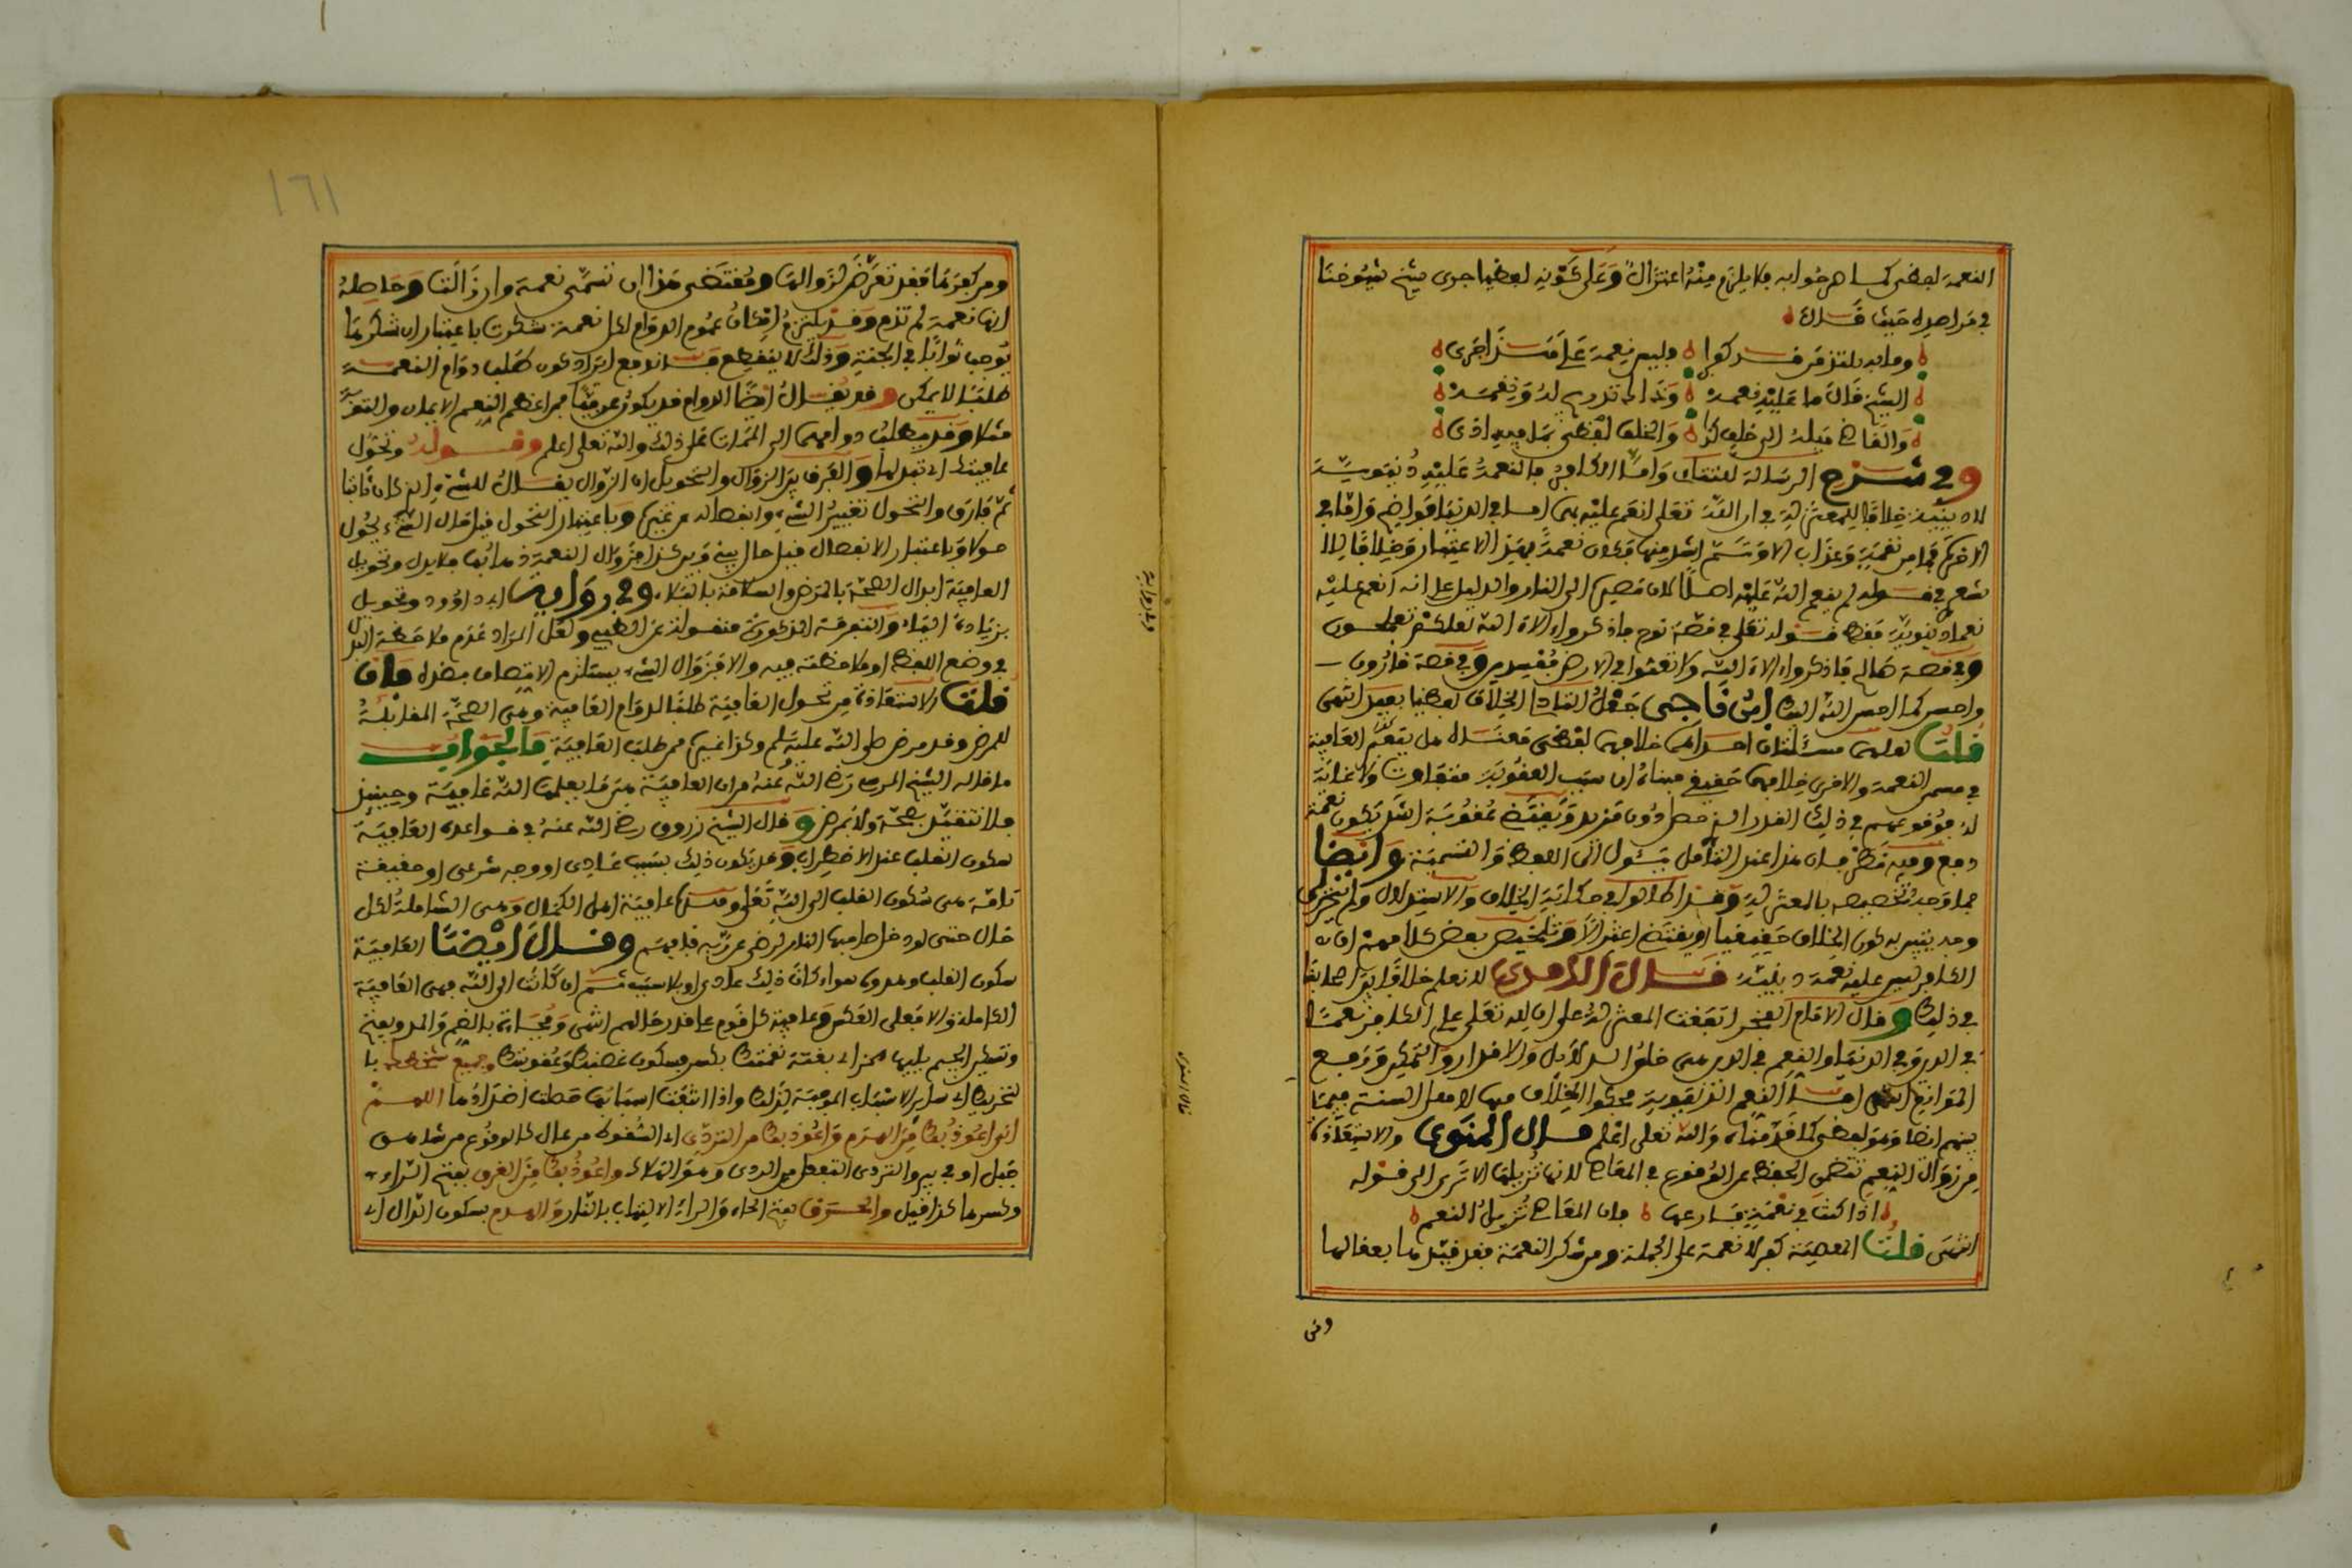 النعمة لفظي كما هو صوابه فلا يلزم منه اعتزال وعلى كونه لفظيا جرى شيخ شيوخنا
في مراصده حيث قال
وما به يلتذ من قد كفرا وليس نعمة على ما شهرا
الشيخ قال ما عليه نعمه ونذا له تدوم له ونقمه
والقاضي ميله إلى خلف كذا والخلف لفظي بما فيه اذى
وفي شرح الرسالة للتتائي واما الكافر فالنعمة عليه دنيوية
لا دينية خلافا للمعتزلة في ان الله تعالى انعم عليه بهما اما في الدنيا فواضح واما في
الاخرى فما من نقمة وعذاب الا وثم اشد منها فكان نعمة بهذا الاعتبار وخلافا للا
شعري في قوله لم ينعم الله عليه اصلا لان مصيره الى النار والدليل على انه انعم عليه
نعما دنيوية فقط قوله تعالى في قصة هود فاذكروا الاء الله لعلكم تفلحون
وفي قصة صالح فاذكروا الاء الله ولا تعثوا في الارض مفسدين وفي قصة قارون
واحسن كما احسن الله اليك ابن ناجي جعل الخلاف لفظيا بعيد انتهى
قلت لعلهما مسئلتان احداهما خلافهما لفظي هل يقدم العافية
في مسمى النعمة والاخرى خلافهما حقيقي مبناه ان سبب العقوبة متفاوت ولا غاية
له فوقوعهم في ذلك القدر الذي حصل دون مزيد ويقتضي عقوبة اشد يكون نعمة
دفع وفيه نظر فان هذا عند التأمل يئول الى اللفظ والتسمية وايضا
فما وجه تخصيصه بالمعتزلة وقد اطالوا في حكاية الخلاف والاستدلال ولم يتحرر
وجه يتبين به كون الخلاف حقيقيا او يقتضي اعتزالا وتلخيص بعض كلامهم ان
الكافر ليس عليه نعمة دينية قال الآمدي لا نعلم خلافا بين اصحابنا
في ذلك وقال الامام الفخر اتفقت المعتزلة على ان لله تعالى على الكافر نعما
في الدين وفي الدنيا والنعم في الدين هي خلق الدلائل والاقدار والتمكين ورفع
الموانع انتهى اما النعم الدنيوية فحكوا الخلاف فيها لاهل السنة فيما
بينهم ايضا وهو لفظي كما قدمناه والله تعالى اعلم قال المنوي والاستعاذة
من زوال النعم تتضمن الحفظ عن الوقوع في المعاصي لانها تزيلها الا ترى الى قوله
اذا كنت في نعمة فارعها فان المعاصي تزيل النعم
انتهى قلت المعصية كفر لا نعمة على الجملة ومن شكر النعمة فقد قيدها بعقالها
ومن
ومن كفرها فقد تعرض لزوالها ومقتضى هذا ان تسمى نعمة وان زالت وحاصله
انها نعمة لم تدم وقد يلتزم امكان عموم الدوام لكل نعمة شكرت باعتبار ان شكرها
يوجب ثوابا في الجنة وذلك لا ينقطع فسلا يدفع ايراد كون طلب دوام النعمة
طلبا لا يمكن وقد يقال ايضا الدوام قد يكون عرفيا فمن اعظم النعم الايمان والتقوى
مثلا وقد يطلب دوامهما الى الممات على ذلك والله تعلى اعلم وقوله وتحول
عافيتك اي تبدلها والفرق بين الزوال والتحويل ان الزوال يقال للشيء الذي كان ثابتا
ثم فارق والتحول تغيير الشيء وانفصاله عن غيره وباعتبار التحول قيل حال الشيء يحول
حولا وباعتبار الانفصال قيل حال بيني وبين كذا فزوال النعمة ذهابها بلا بدل وتحويل
العافية ابدال الصحة بالمرض والسلامة بالبلاء وفي رواية ابي داوود وتحويل
بزيادة الياء والتفرقة المذكورة منقولة عن الطيبي ولعل المراد عدم ملاحظة البدل
في وضع اللفظ او ملاحظته فيه والا فزوال الشيء يستلزم الاتصاف بضده فان
قلت الاستعاذة من تحول العافية طلب لدوام العافية وهي الصحة المقابلة
للمرض وقد مرض صلى الله عليه وسلم وكذا غيره ممن طلب العافية فالجواب
ما قاله الشيخ المرسي رضي الله عنه من ان العافية من ما يعلمها الله عافية وحينئذ
فلا تتقيد بصحة ولا مرض وقال الشيخ زروق رضي الله عنه في قواعده العافية
سكون القلب عند الاضطراب وقد يكون ذلك بسبب عادي او وجه شرعي او حقيقة
تامة هي سكون القلب الى الله تعلى وهذه عافية اهل الكمال وهي الشاملة لكل
حال حتى لو دخل صاحبها النار لرضي عن ربه فافهم وقال ايضا العافية
سكون القلب وهدوه سواء كان ذلك عادي او بلا سبب ثم ان كانت الى الله فهي العافية
الكاملة والا فعلى العكس وعافية كل قوم على قدر حالهم انتهى وفجاءة بالضم والمد وبفتح
وتسكين الجيم يليها همزة اي بغتة نقمتك بكسر فسكون غضبك وعقوبتك وجميع سخطك با
لتحريك اي سائر الاسباب الموجبة لذلك واذا انتفت اسبابها حصلت اضدادها اللهم
اني اعوذ بك من الهرم واعوذ بك من التردي اي السقوط من عال كالوقوع من شاهق
جبل او في بير والتردي التفعل من الردى وهو الهلاك واعوذ بك من الغرق بفتح الراء
وكسرها كذا قيل والحرق بفتح الحاء والراء الالتهاب بالنار والهدم بسكون الدال اي
١٦١